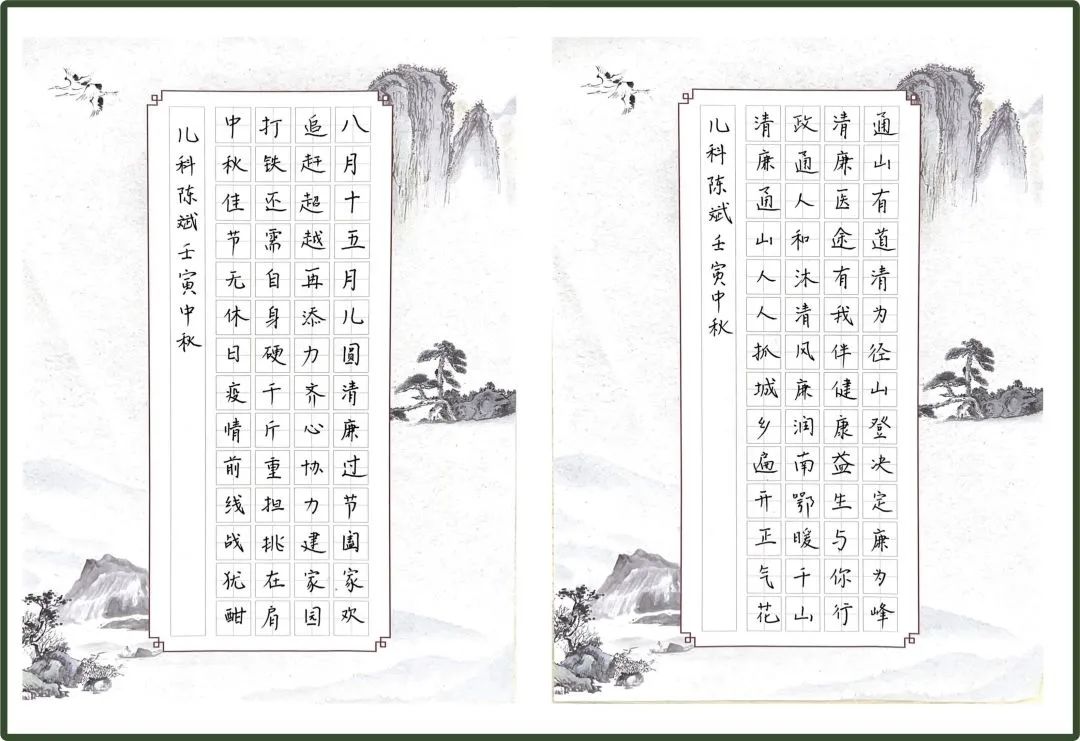 八月十五月儿圆清廉过节阖家欢
追赶超越再添力齐心协力建家园
打铁还需自身硬千斤重担挑在肩
中秋佳节无休日疫情前线战犹酣
儿科陈斌壬寅中秋
通山有道清为径山登决定廉为峰
清廉医途有我伴健康益生与你行
政通人和沐清风廉润南鄂暖千山
清廉通山人人抓城乡遍开正气花
儿科陈斌壬寅中秋